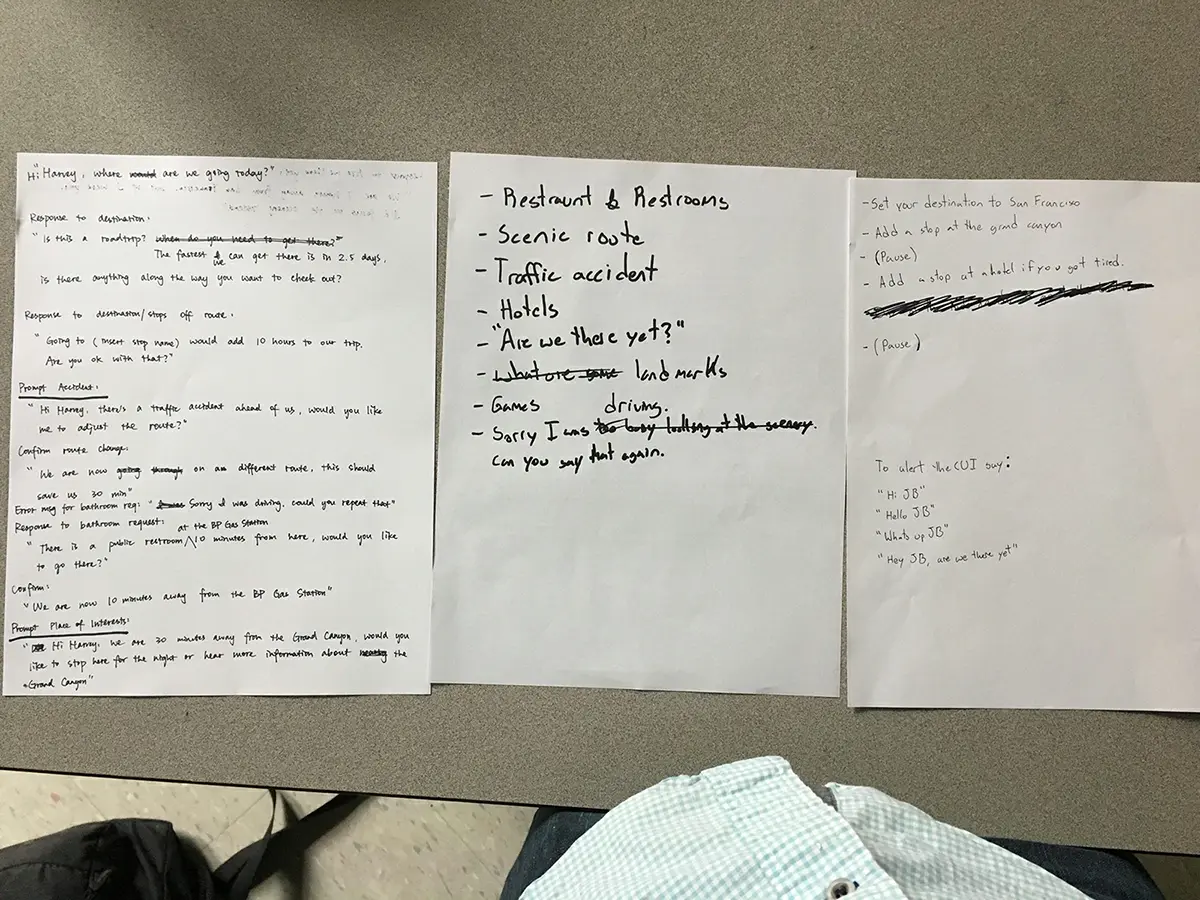 "Hi Harvey, where would are we going today?"
Response to destination:
"Is this a roadtrip? When do you need to get there?"
The fastest we can get there is in 2.5 days,
is there anything along the way you want to check out?
Response to destination/stops off route:
"Going to (insert stop name) would add 10 hours to our trip.
Are you ok with that?"
Prompt Accident:
"Hi Harvey, there's a traffic accident ahead of us, would you like
me to adjust the route?"
Confirm route change:
"We are now going through on a different route, this should
save us 30 min"
Error msg for bathroom req: "Sorry I was driving, could you repeat that"
Response to bathroom request: at the BP Gas Station
"There is a public restroom /\ 10 minutes from here, would you like
to go there?"
Confirm:
"We are now 10 minutes away from the BP Gas Station"
Prompt Place of Interests:
"Hi Harvey, we are 30 minutes away from the Grand Canyon, would you
like to stop here for the night or hear more information about the
Grand Canyon"
- Restraunt & Restrooms
- Scenic route
- Traffic accident
- Hotels
- "Are we there yet?"
- What are some landmarks
- Games
driving.
- Sorry I was too busy looking at the scenery.
can you say that again.
- Set your destination to San Francisco
- Add a stop at the grand canyon
- (Pause)
- Add a stop at a hotel if you get tired.
- (Pause)
To alert the CUI say:
"Hi JB"
"Hello JB"
"Whats up JB"
"Hey JB, are we there yet"